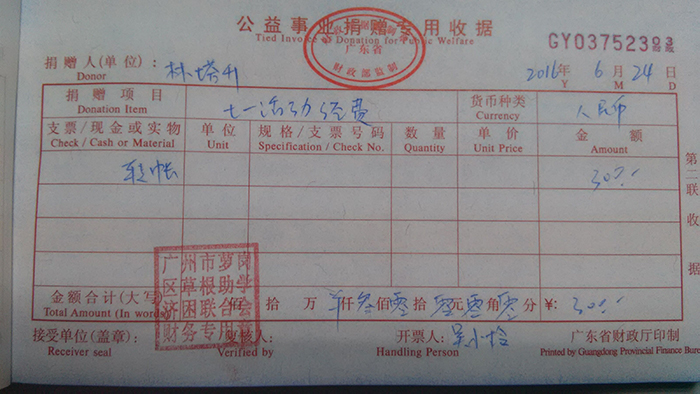 公益事业捐赠专用收据
Tied Invoice of Donation for Public Welfare
广东省
财政部监制
GY03752393
捐赠人(单位): 林塔升 2016年 6月 24日
Donor Y M D
捐赠项目 七一活动经费 货币种类 人民币
Donation Item Currency
支票/现金或实物 单位 规格/支票号码 数量 单价 金额
Check / Cash or Material Unit Specification / Check No. Quantity Unit Price Amount
转帐 300.
第二联收据
金额合计(大写) 佰 拾 万 仟叁佰零拾零元零角零分 ¥: 300.
Total Amount (In words)
广州市萝岗
区草根助学
济困联合会
财务专用章
接受单位(盖章): 复核人: 开票人: 广东省财政厅印制
Receiver seal Verified by Handling Person Printed by Guangdong Provincial Finance Bure